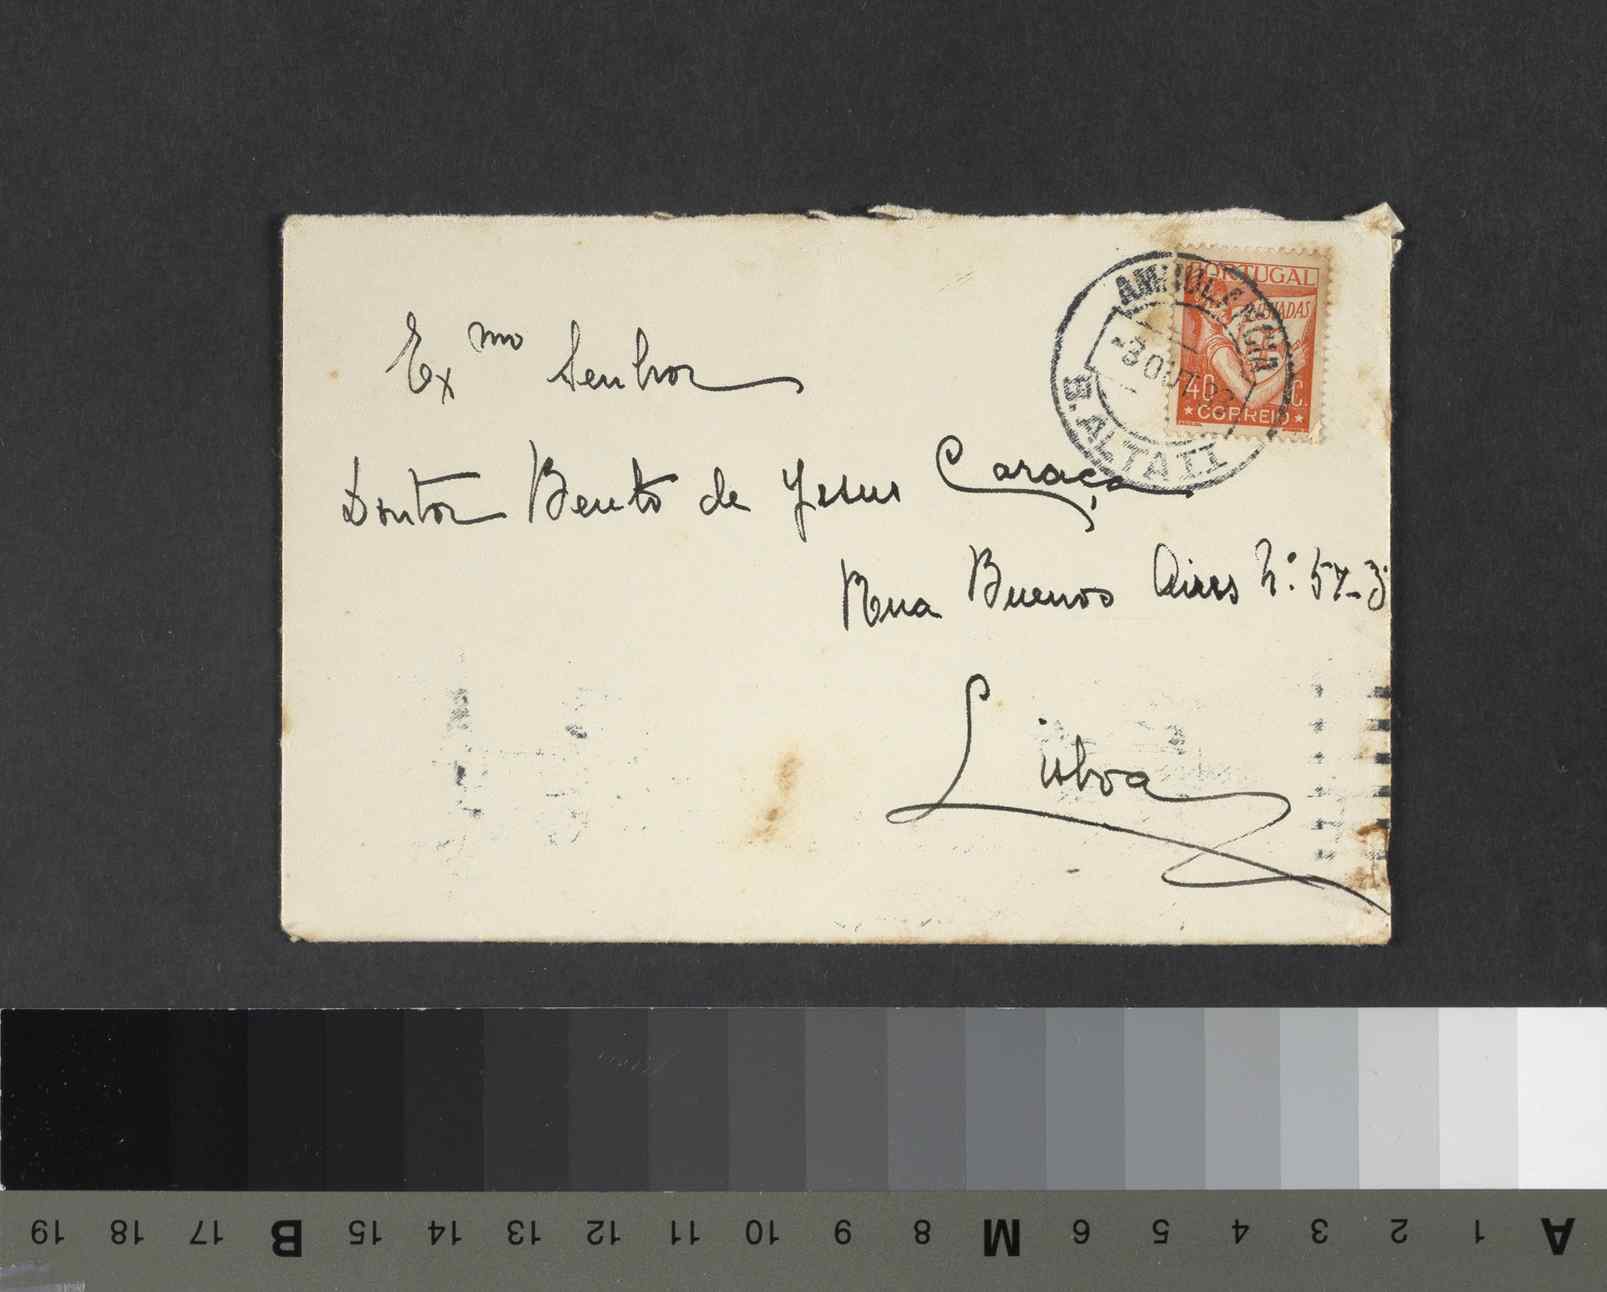 PORTUGAL
LUSIADAS
40 C.
★CORREIO★
AMBULANCIA
-3 OUT
B. ALTA II
Exmo Senhor
Doutor Bento de Jesus Caraça
Rua Buenos Aires Nº 57-3º
Lisboa
19 18 17 B 15 14 13 12 11 10 9 8 M 6 5 4 3 2 1 A